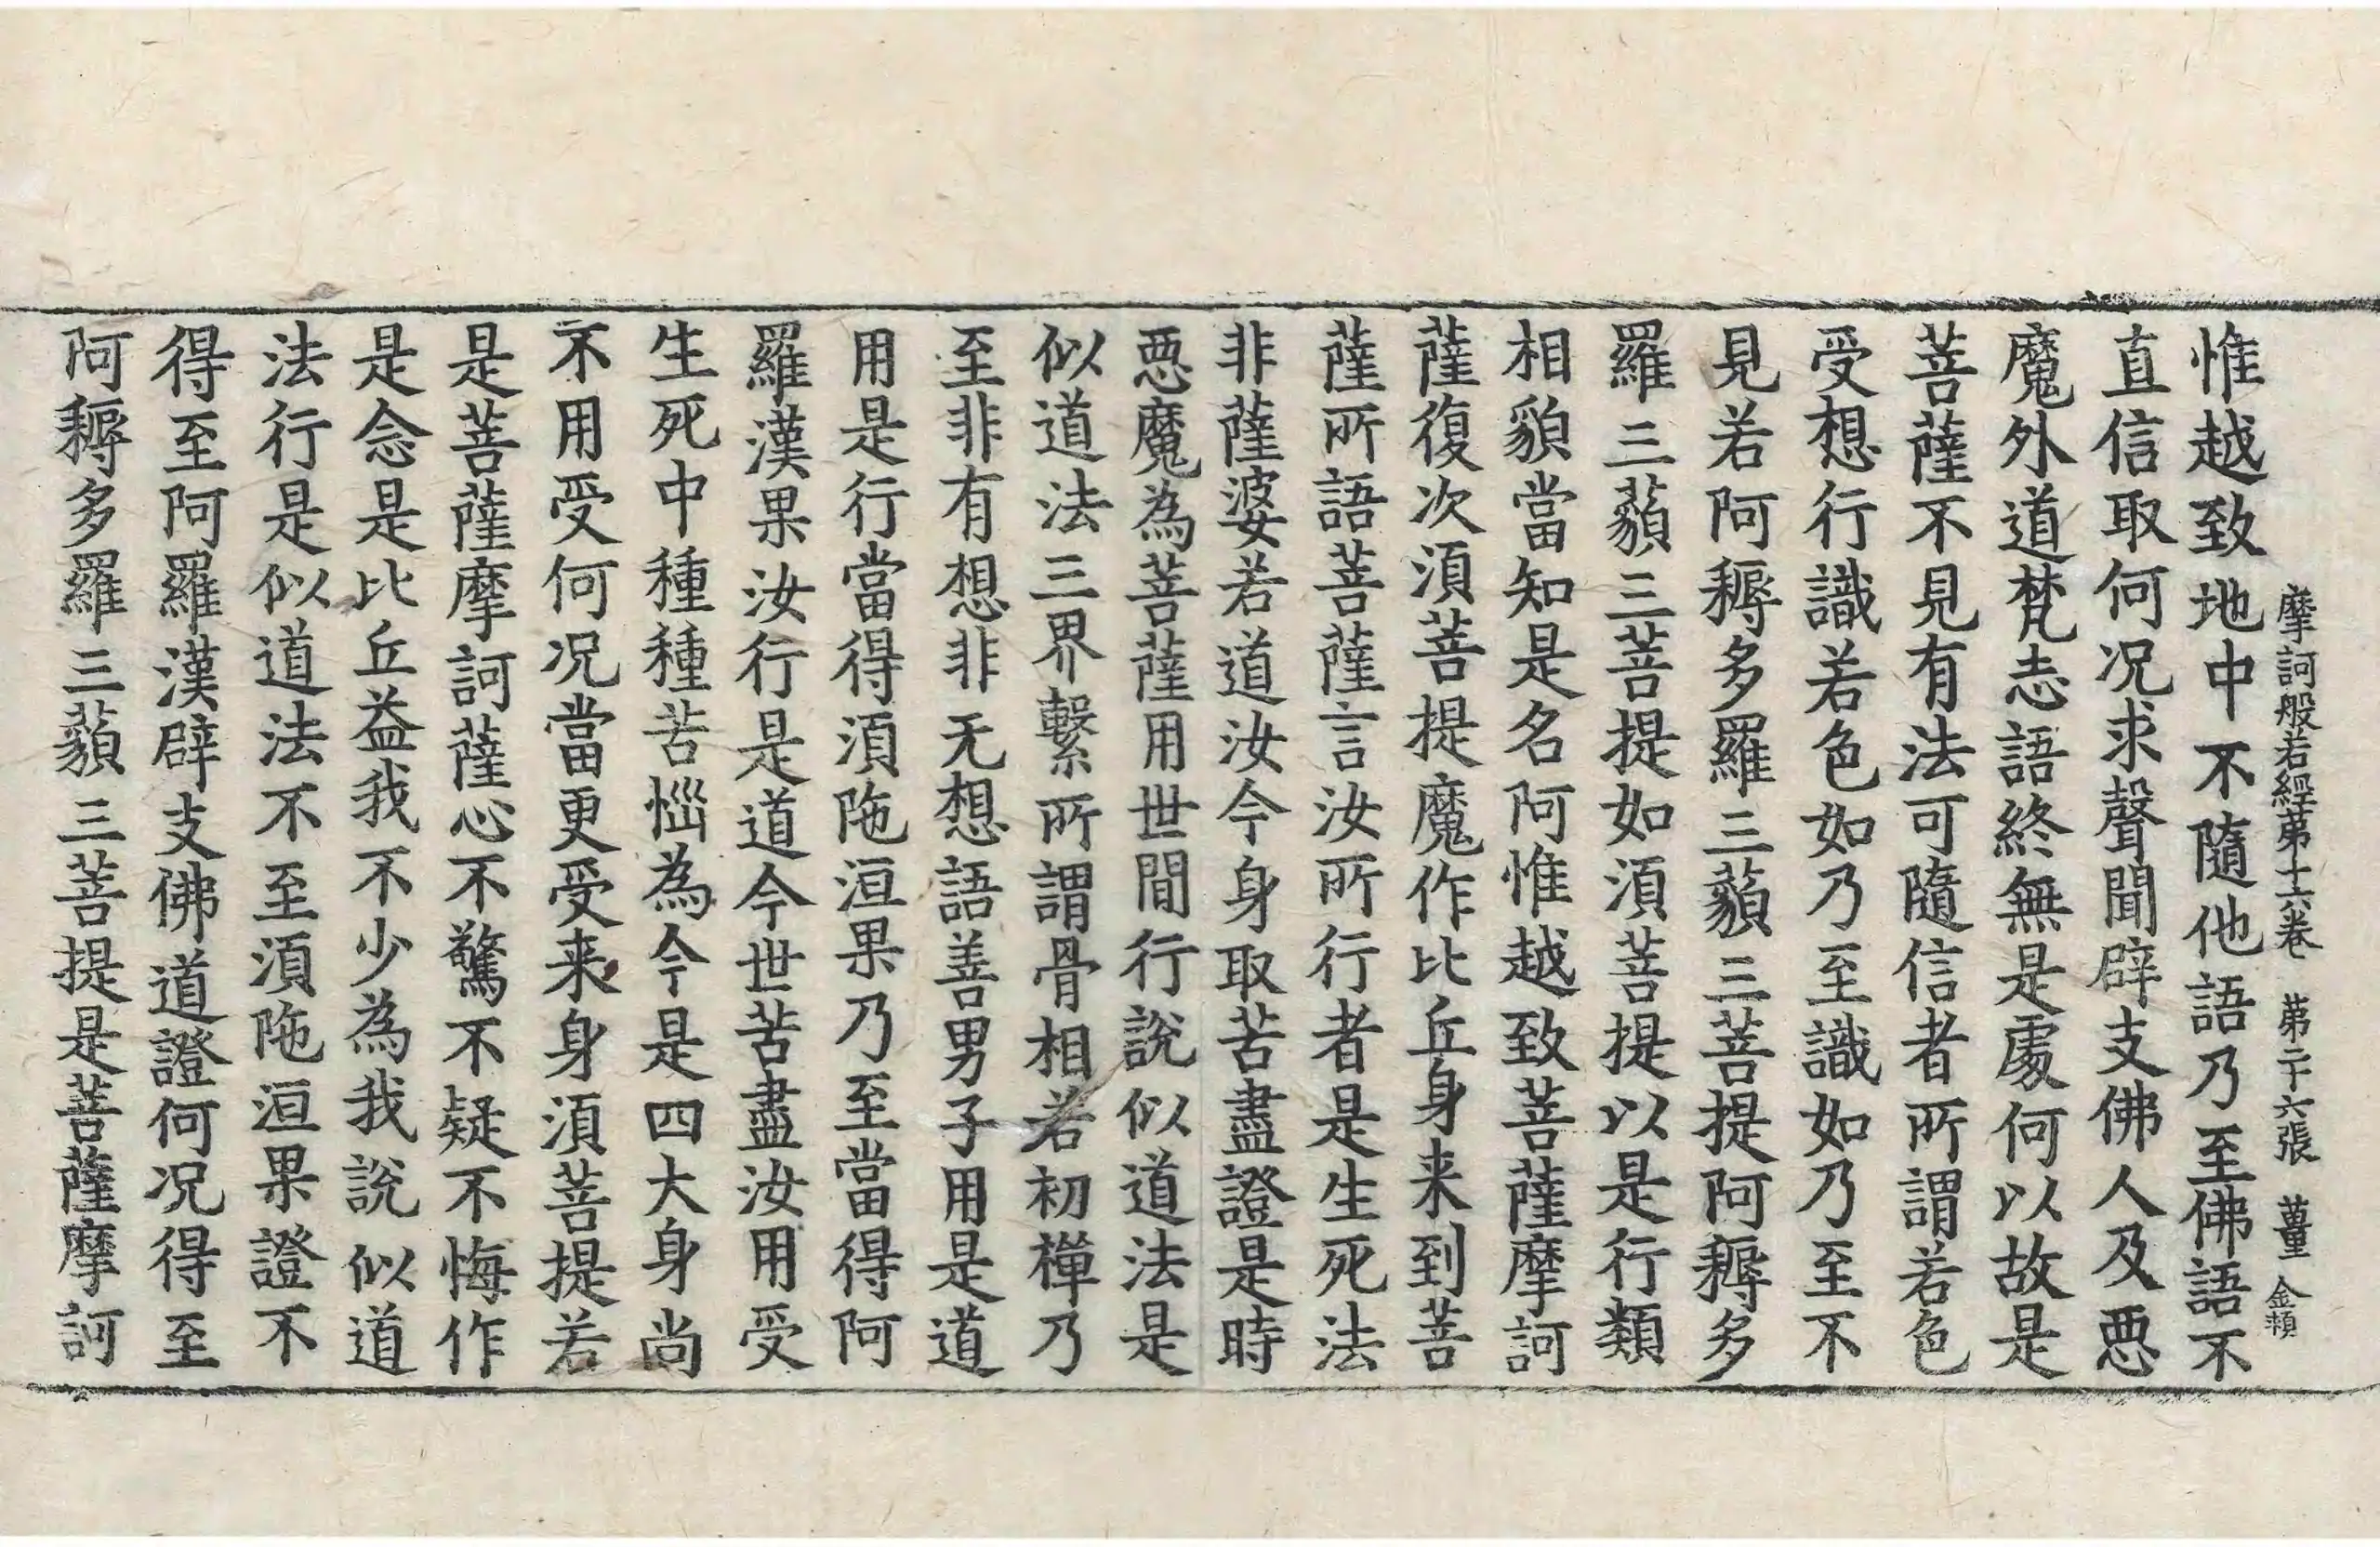 摩訶般若經第十六卷 第二十六張 薑 金頪
惟越致地中不隨他語乃至佛語不
直信取何况求聲聞辟支佛人及惡
魔外道梵志語終無是處何以故是
菩薩不見有法可隨信者所謂若色
受想行識若色如乃至識如乃至不
見若阿耨多羅三藐三菩提阿耨多
羅三藐三菩提如須菩提以是行類
相貌當知是名阿惟越致菩薩摩訶
薩復次須菩提魔作比丘身来到菩
薩所語菩薩言汝所行者是生死法
非薩婆若道汝今身取苦盡證是時
惡魔為菩薩用世間行說似道法是
似道法三界繫所謂骨相若初禅乃
至非有想非无想語善男子用是道
用是行當得須陁洹果乃至當得阿
羅漢果汝行是道今世苦盡汝用受
生死中種種苦惱為今是四大身尚
不用受何况當更受来身須菩提若
是菩薩摩訶薩心不驚不疑不悔作
是念是比丘益我不少為我說似道
法行是似道法不至須陁洹果證不
得至阿羅漢辟支佛道證何况得至
阿耨多羅三藐三菩提是菩薩摩訶